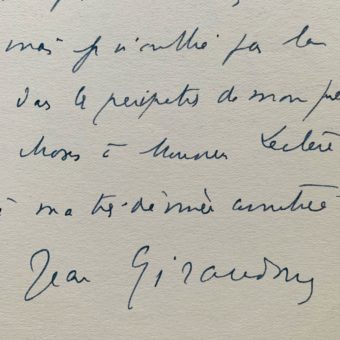 mais je n'oublie pas la
dans le peripeties de mon
à Monsieur Leclère
à ma très dévouée amitié
Jean Giraudoux